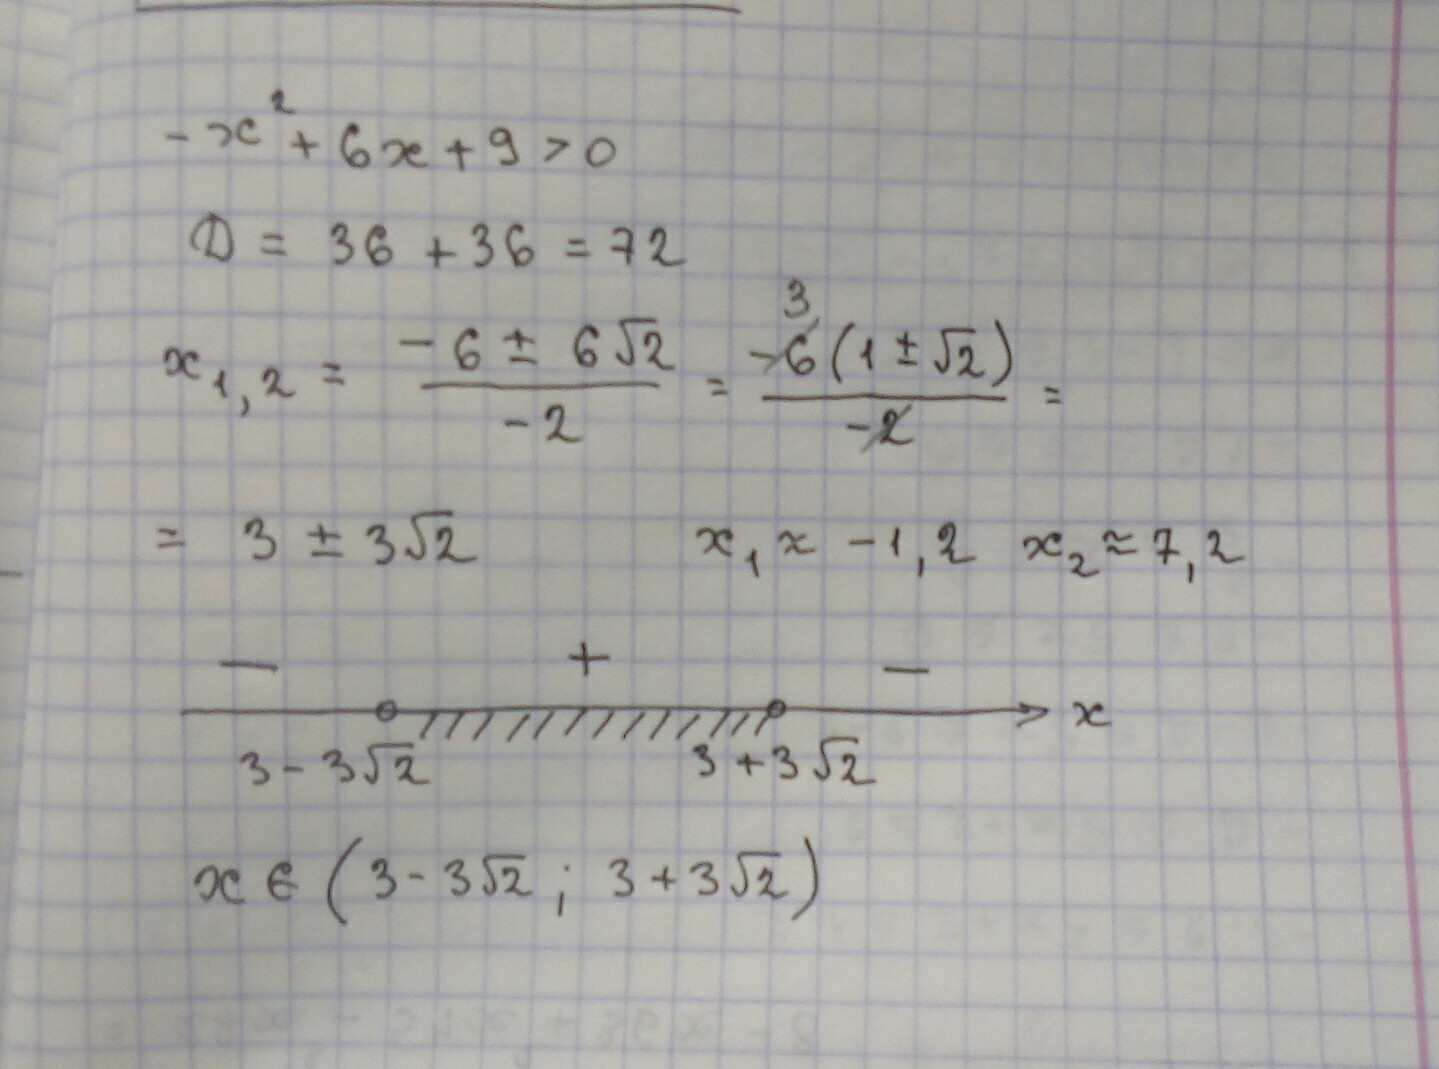 -x² + 6x + 9 > 0
D = 36 + 36 = 72
x₁,₂ = (-6 ± 6√2)/(-2) = (-6(1 ± √2))/(-2) = 3
= 3 ± 3√2 x₁ ≈ -1,2 x₂ ≈ 7,2
− + −
x
3 - 3√2 3 + 3√2
x ∈ (3 - 3√2 ; 3 + 3√2)